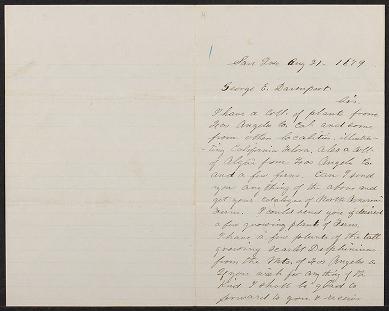 San Jose Aug 21 - 1879
George E. Davenport
Sir.
I have a coll. of plants from
Los Angeles Co. Cal. and some
from other localities, illustra-
-ting California Flora, also a coll.
of Algae from Los Angeles Co.
and a few ferns. Can I send
you anything of the above and
get your catalogue of North American
Ferns. I could send you if desired
a few growing plants of Ferns.
I have a few plants of the tall
growing Scarlet Delphinium
from the Mts. of Los Angeles Co
If you wish for anything of the
kind I shall be glad to
forward to you & receive